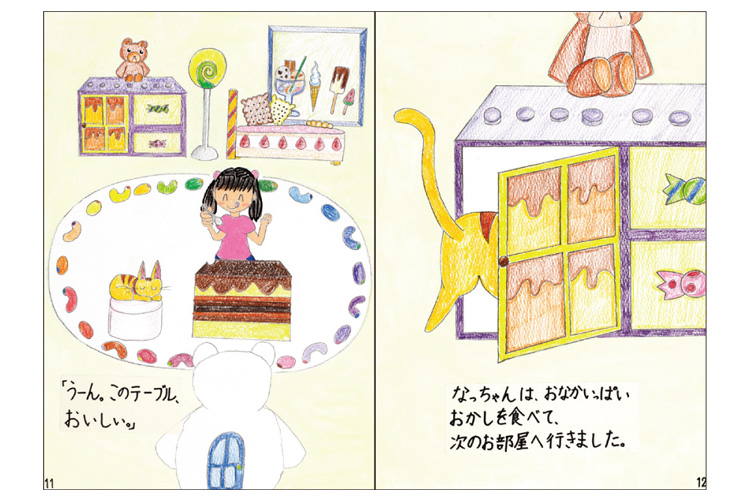 「うーん。このテーブル、
おいしい。」
11
なっちゃんは、おなかいっぱい
おかしを食べて、
次のお部屋へ行きました。
12